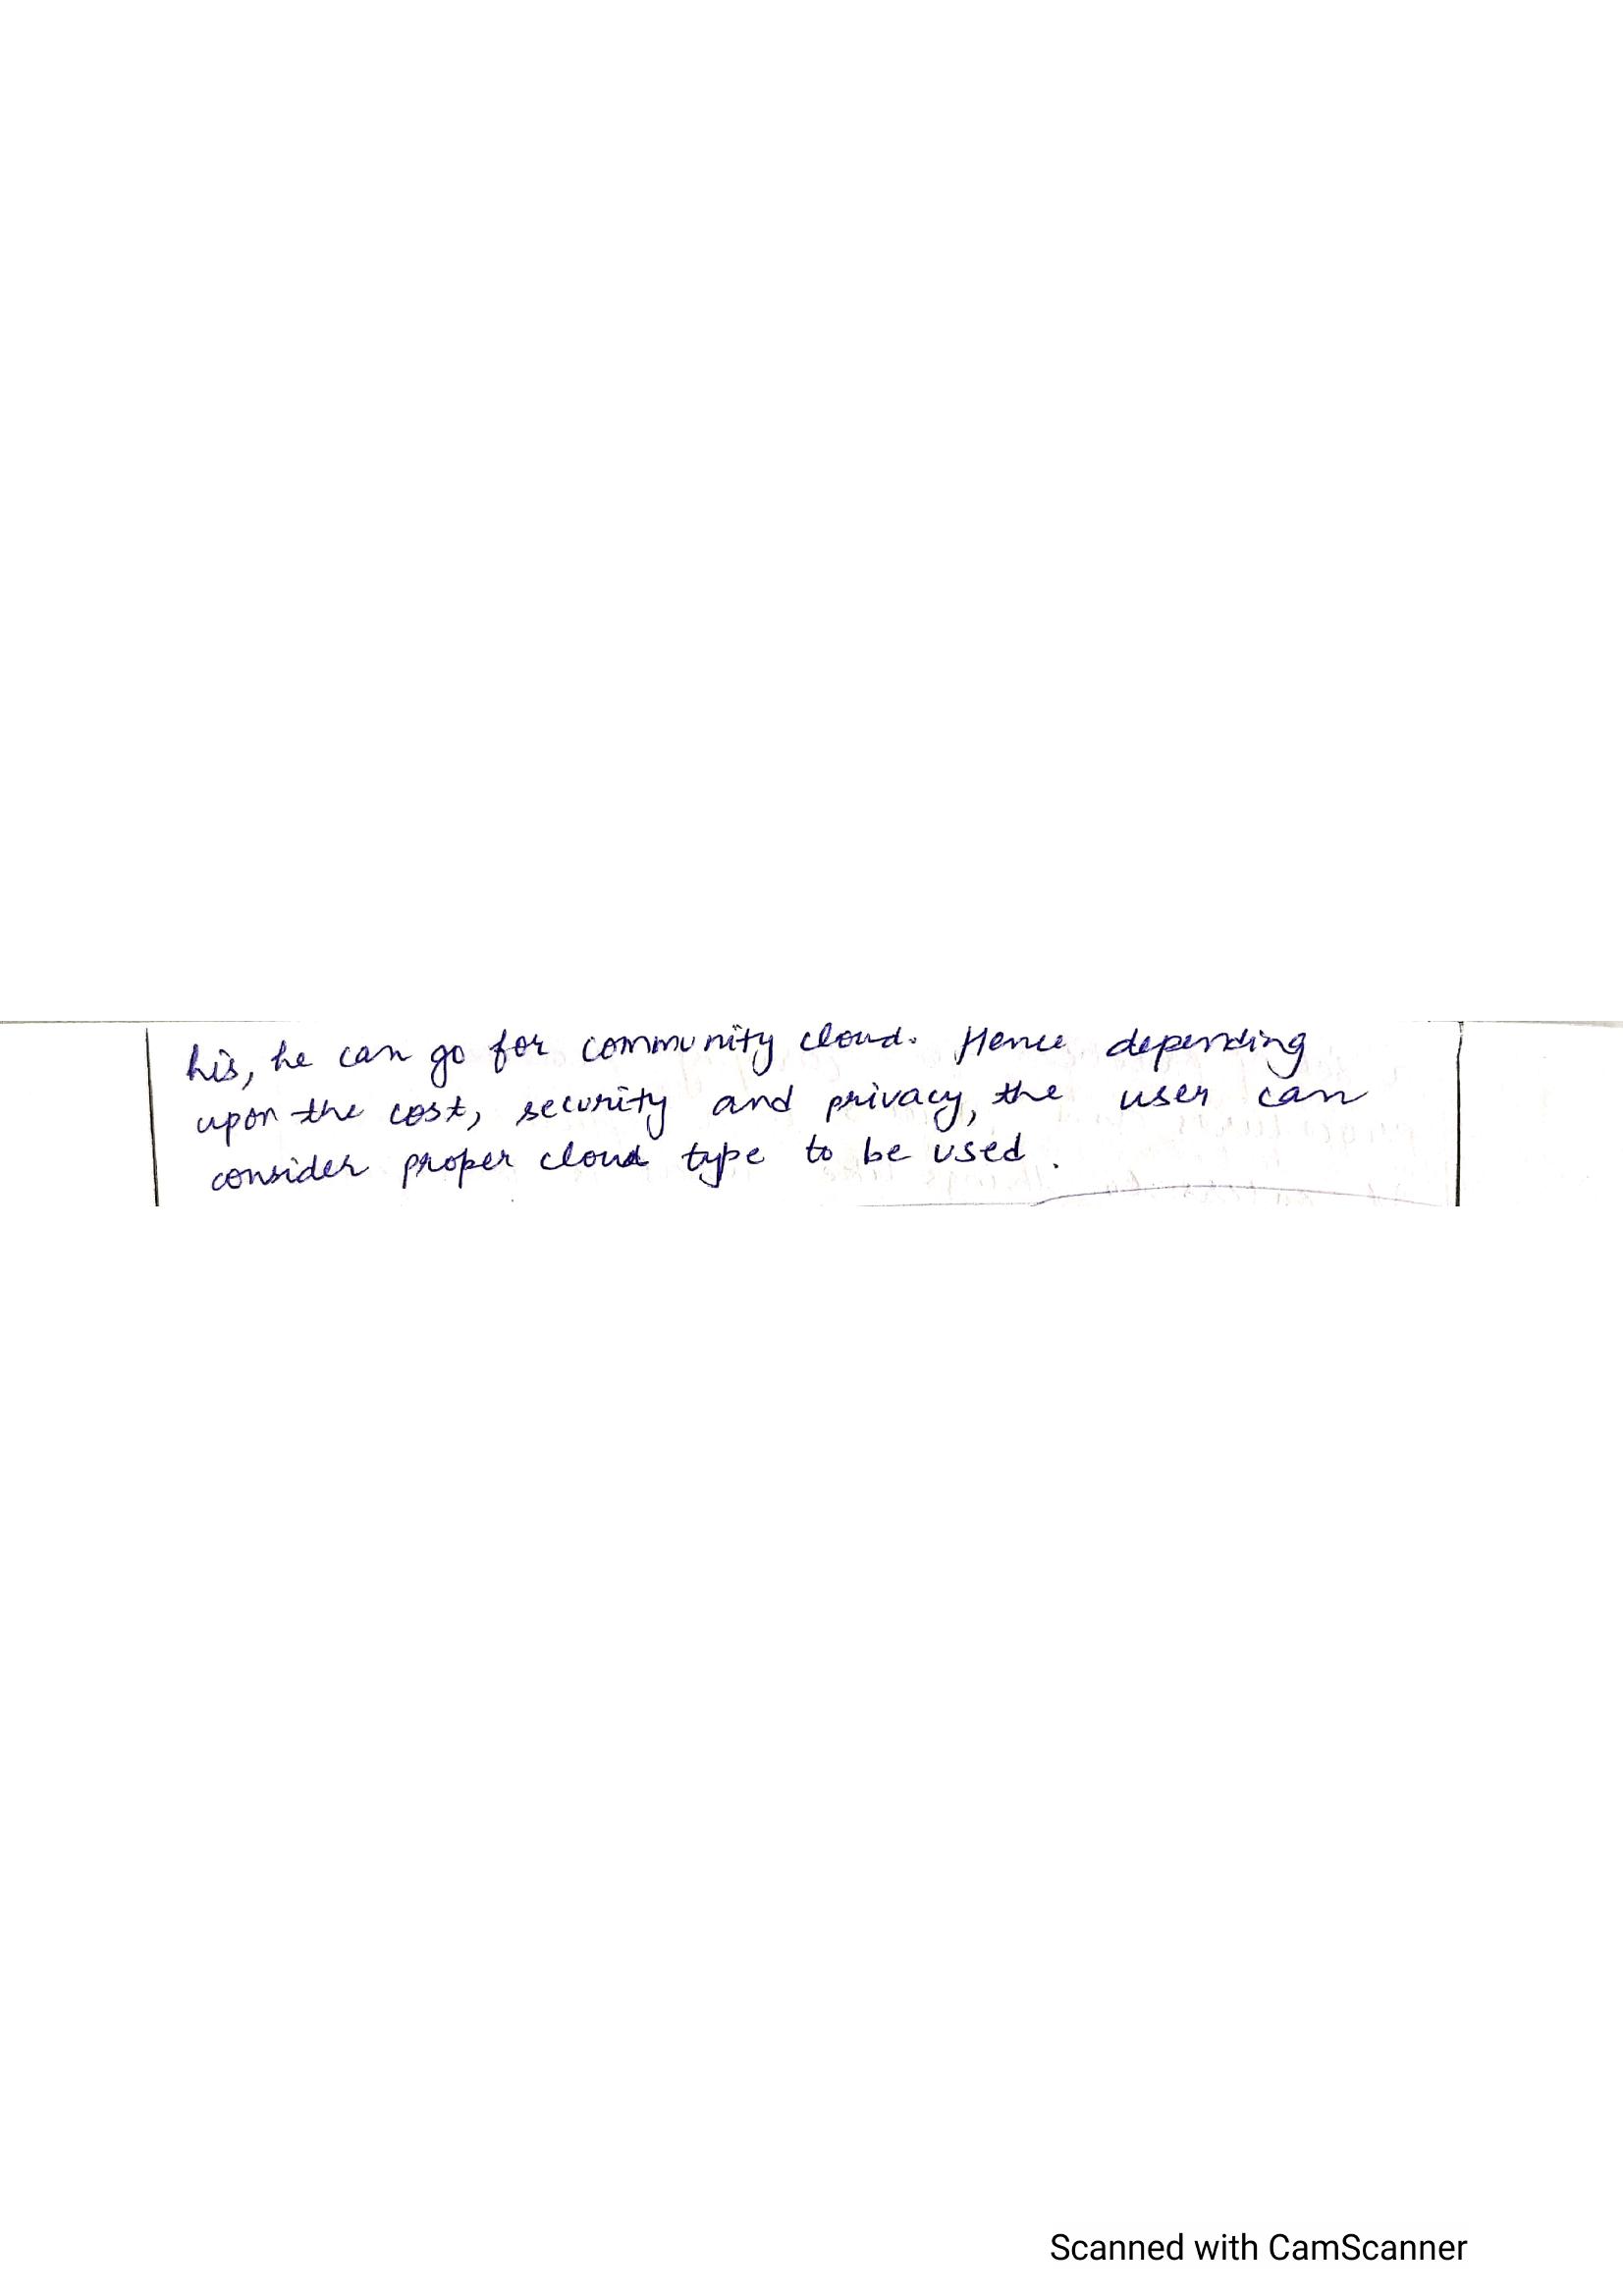 his, he can go for community cloud. Hence depending
upon the cost, security and privacy, the user can
consider proper cloud type to be used.
Scanned with CamScanner